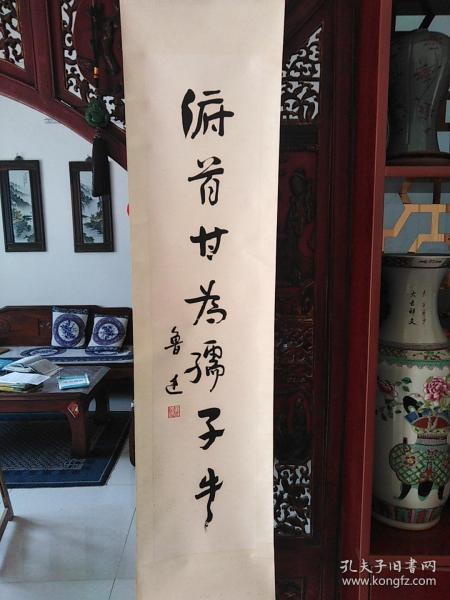 俯首甘为孺子牛
鲁迅
孔夫子旧书网
www.kongfz.com